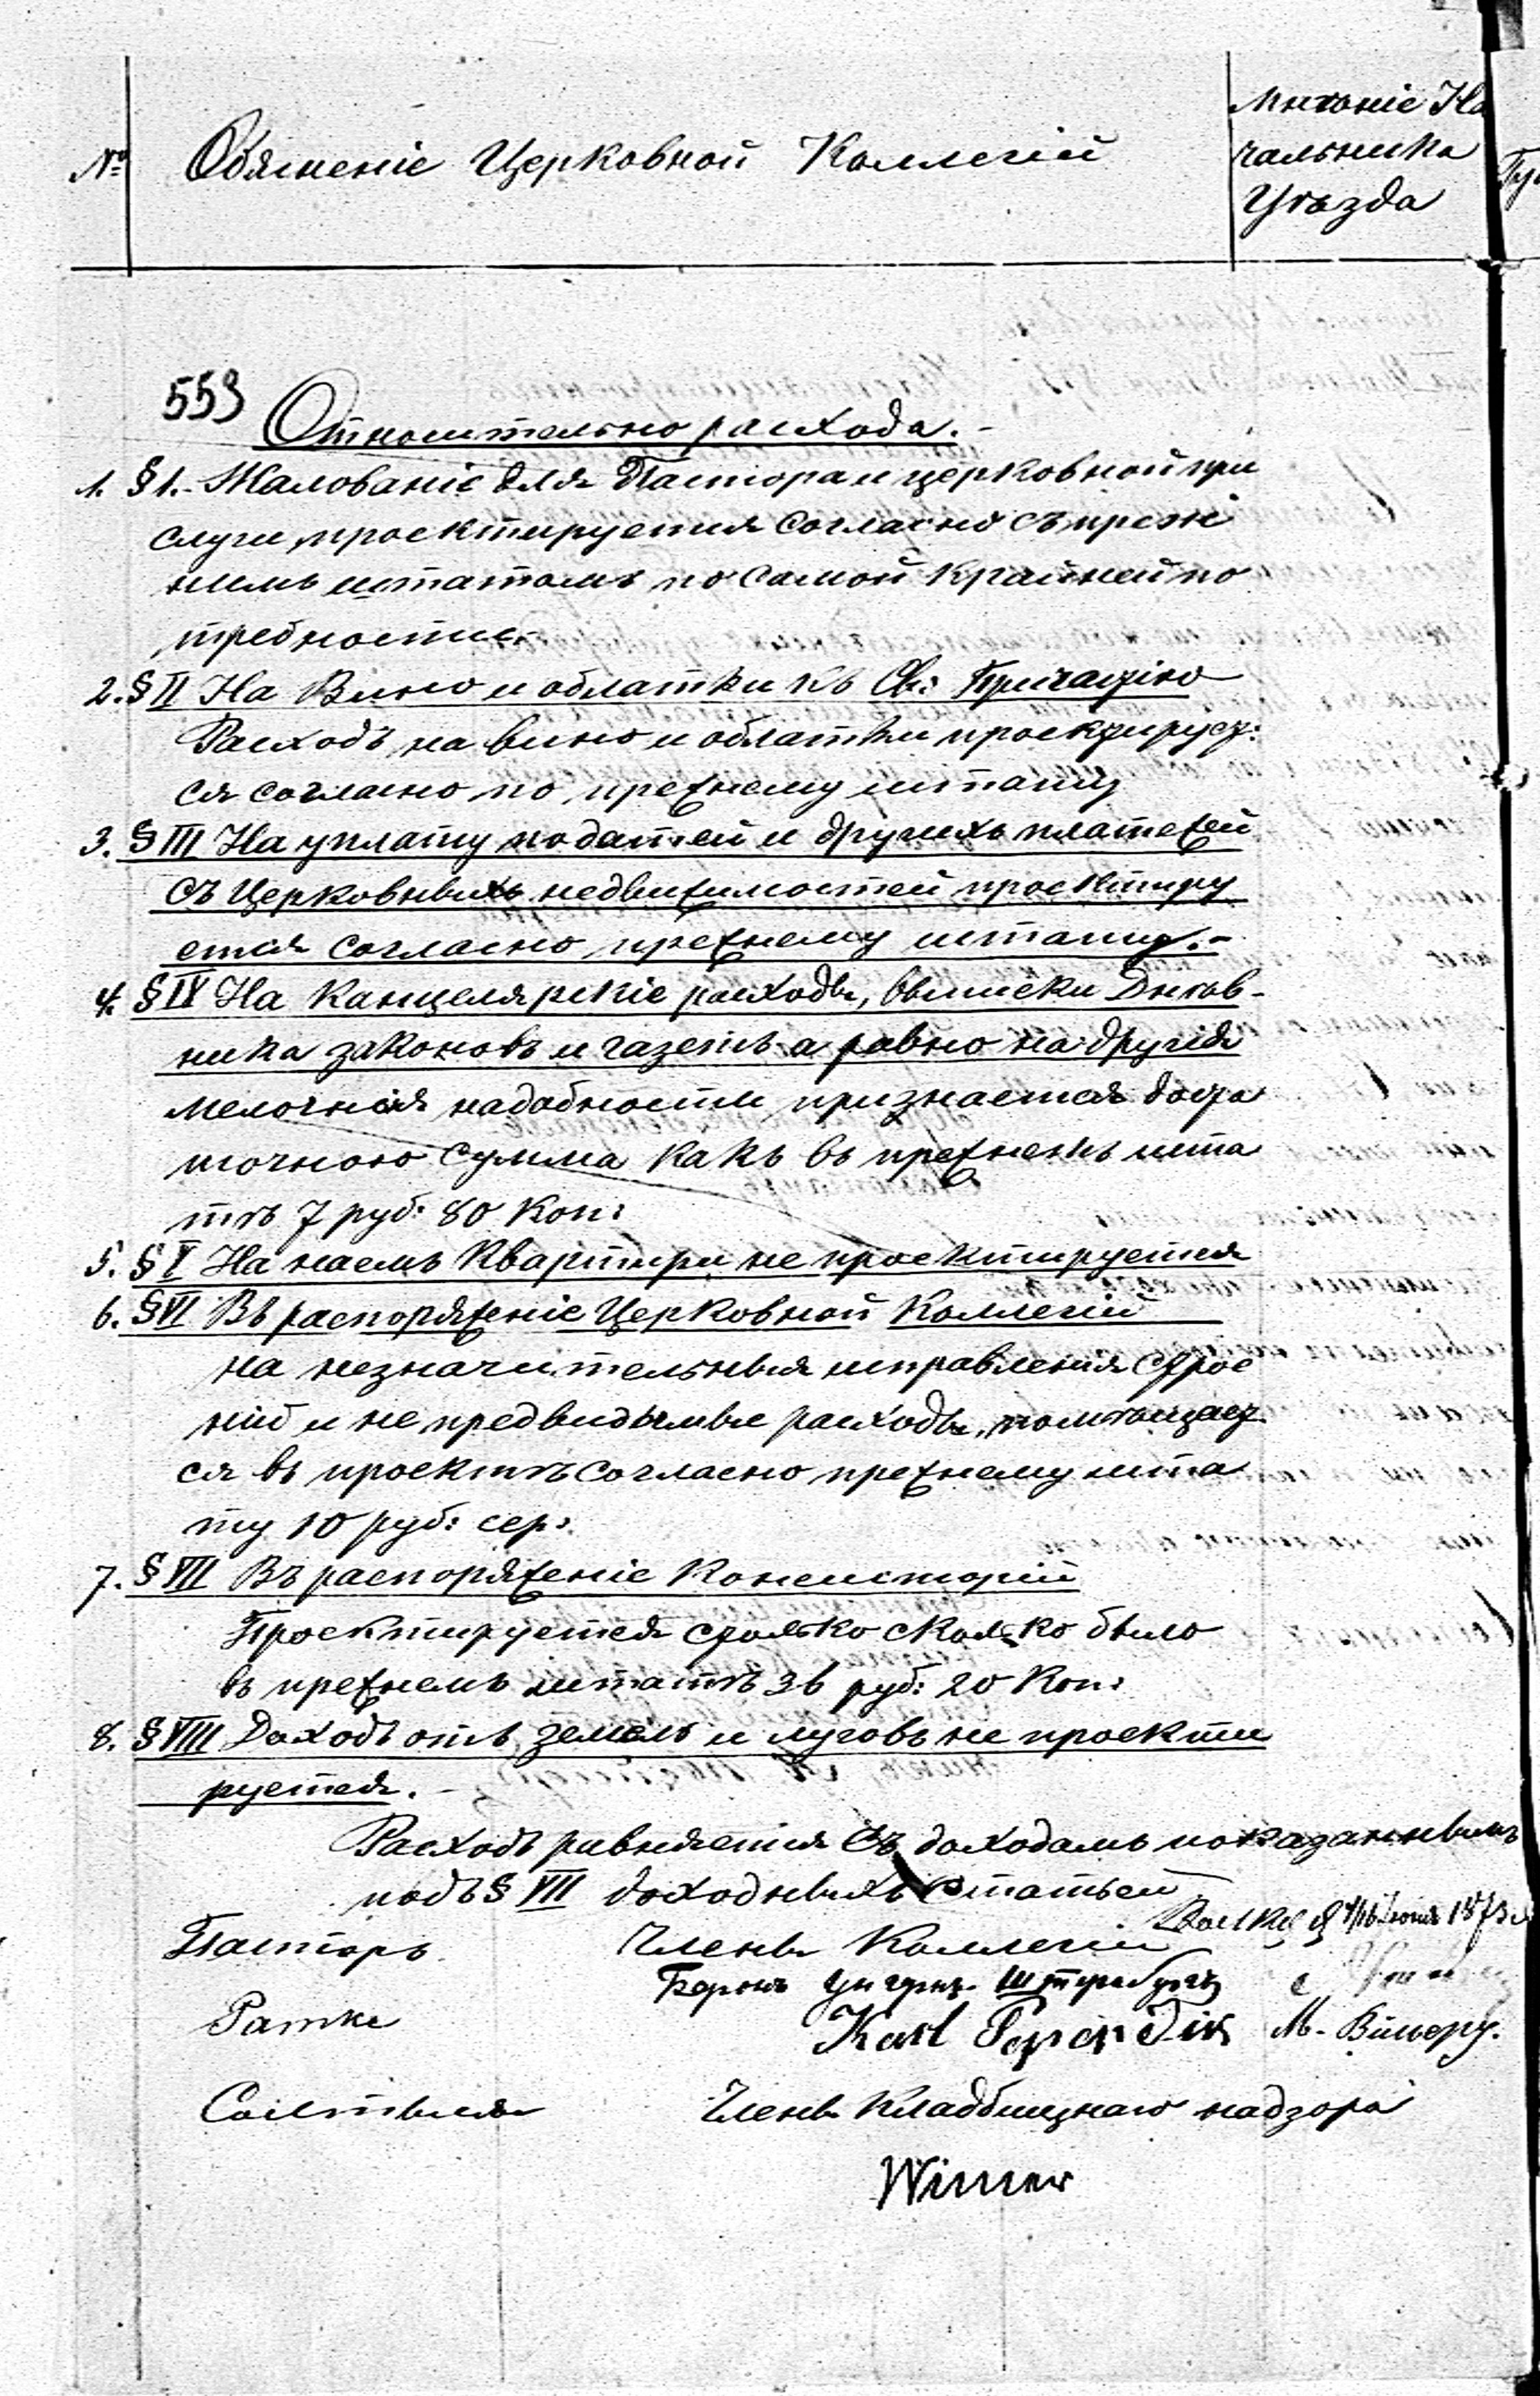 № Объясненіе Церковной Коллегіи
Мнѣніе На
чальника
Уѣзда
553
Относительно расхода.-
1. § 1.- Жалованіе для Пастора и церковной при
слуги, проектируется согласно съ преж
нимъ штатомъ по самой крайней по
требности.-
2. § II На Вино и облатки къ Св: Причащію
Расходъ на вино и облатки проектирует:
ся согласно по прежнему штату
3. § III На уплату податей и другихъ платежей
съ Церковныхъ недвижимостей проектиру
ется согласно прежнему штату.-
4. § IV На Канцелярскіе расходы, выписки Днев-
ника законовъ и газетъ а равно на другія
мелочныя надобности признается доста
точною сумма какъ въ прежнемъ шта
тѣ 7 руб: 80 Коп:
5. § V На наемъ Квартиры не проектируется
6. § VI Въ распоряженіе Церковной Коллегіи
на незначительныя исправленія строе
ній и не предвидимые расходы, помѣщает
ся въ проектѣ согласно прежнему шта
ту 10 руб: сер:
7. § VII Въ распоряженіе Консисторіи
Проектируется столько сколько было
въ прежнемъ штатѣ 36 руб: 20 Коп:
8. § VIII Доходъ отъ земель и луговъ не проекти
руется.-
Расходъ равняется съ доходамъ показаннымъ
подъ § VII доходныхъ статьей
1873
Пасторъ Члены Коллегіи
Баронъ Унгернъ Штернбергъ
Ратке Karl М.
Члены Кладбищнаго надзора
Wimer